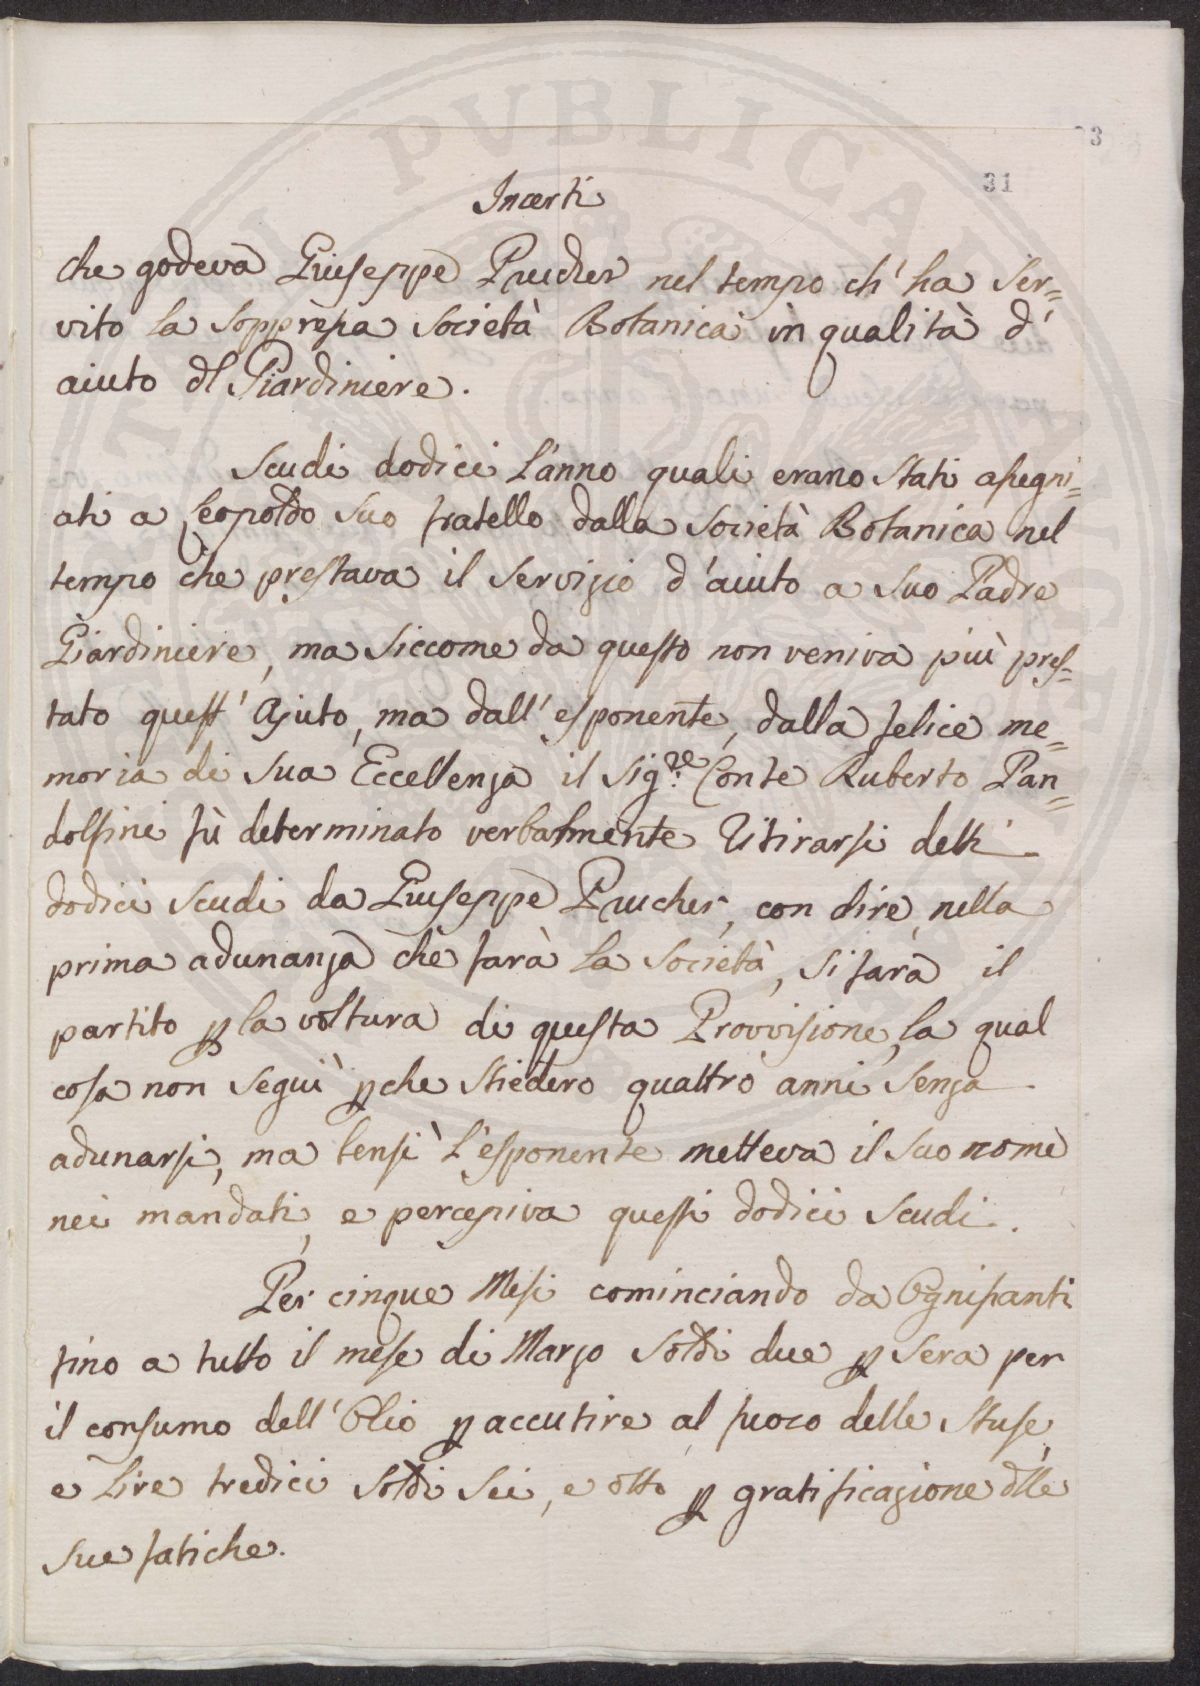 31
Incerti
che godeva Giuseppe Puucher nel tempo ch' ha Ser=
vito la Soppressa Società Botanica in qualità d'
aiuto dl Giardiniere.
Scudi dodici l'anno quali erano stati assegni=
ati a Leopoldo Suo fratello dalla Società Botanica nel
tempo che prestava il Servizio d'aiuto a Suo Padre
Giardiniere, ma Siccome da questo non veniva più pres=
tato quest' Ajuto, ma dall' esponente, dalla felice me=
moria di Sua Eccellenza il Sig.re Conte Ruberto Pan=
dolfini fù determinato verbalmente Ritirarsi detti
dodici scudi da Giuseppe Puucher, con dire, nella
prima adunanza che farà la Società, Si farà il
partito p la voltura di questa Provvisione, la qual
cosa non Seguì pche Stiedero quattro anni Senza
adunarsi, ma bensì L'esponente metteva il Suo nome
nei mandati, e percepiva questi dodici Scudi.
Per cinque Mesi cominciando da Ognisanti
fino a tutto il mese di Marzo Soldi due p Sera per
il consumo dell' Olio p accutire al fuoco delle Stufe,
e Lire tredici Soldi Sei, e otto p gratificazione dlle
Sue fatiche.